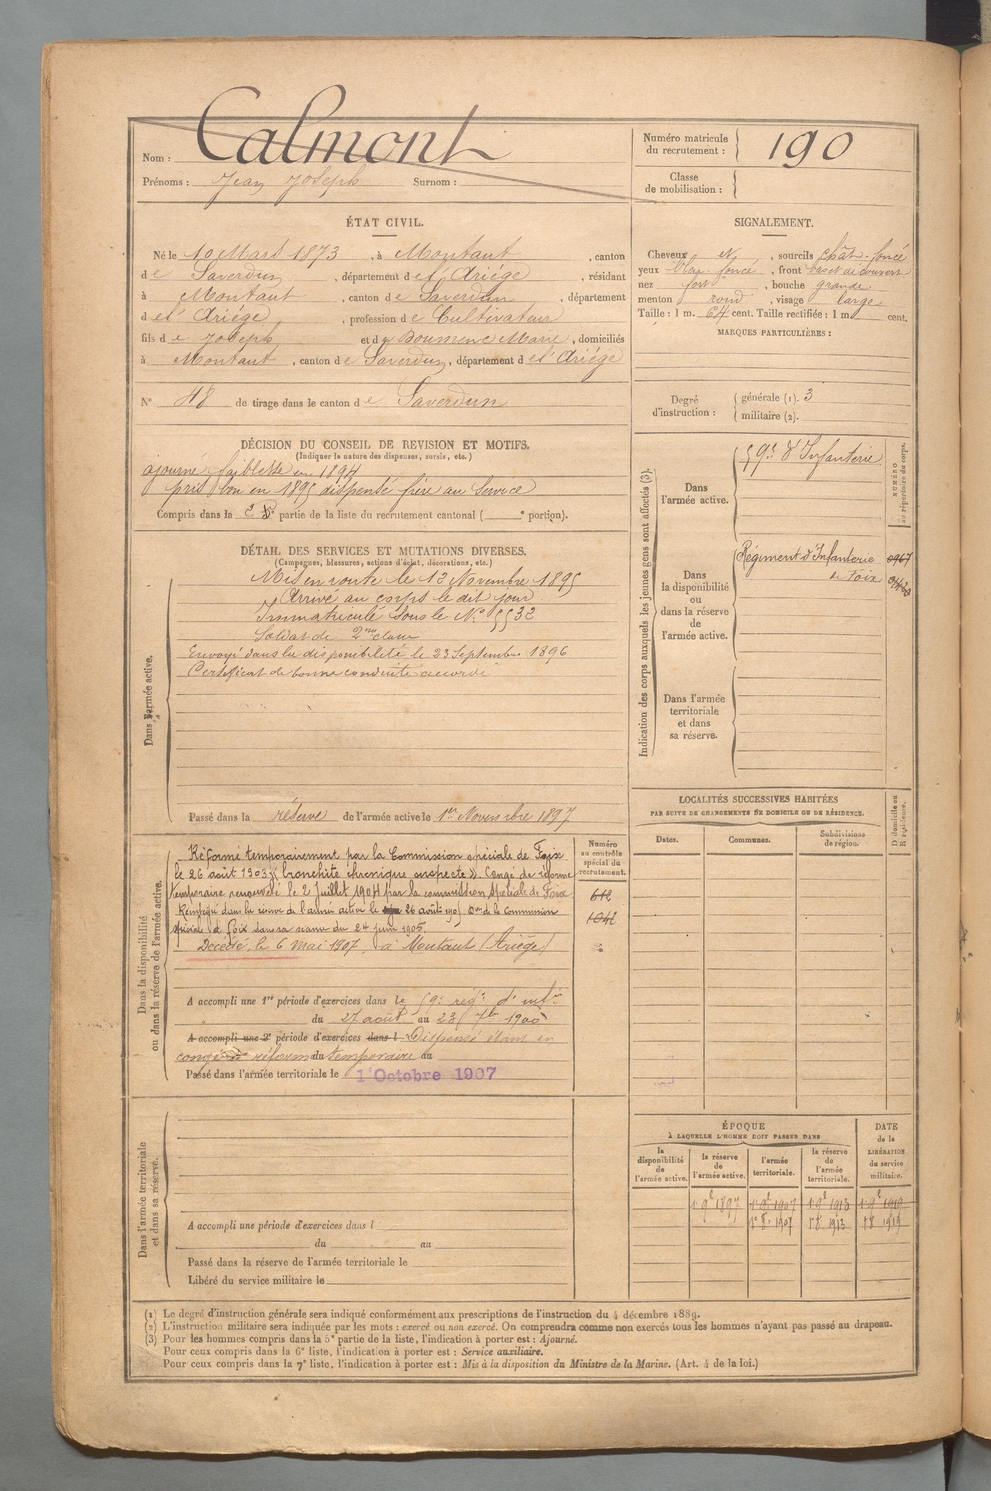 Nom : Calmont
Prénoms : Jean Joseph Surnom :
Numéro matricule du recrutement : 190
Classe de mobilisation :
ÉTAT CIVIL.
Né le 10 Mars 1873, à Montaut, canton
de Saverdun, département de l'Ariége, résidant
à Montaut, canton de Saverdun, département
de l'Ariége, profession de Cultivateur
fils de Joseph et de Boumenc Marie, domiciliés
à Montaut, canton de Saverdun, département de l'Ariége
N° 48 de tirage dans le canton de Saverdun
SIGNALEMENT.
Cheveux et, sourcils chât. foncé
yeux bleu foncé, front bas et découvert
nez fort, bouche grande
menton rond, visage large
Taille : 1 m. 64 cent. Taille rectifiée : 1 m. cent.
MARQUES PARTICULIÈRES :
Degré d'instruction : générale (1). 3
militaire (2).
DÉCISION DU CONSEIL DE REVISION ET MOTIFS.
(Indiquer la nature des dispenses, sursis, etc.)
ajourné faiblesse en 1894
pris bon en 1895 dispensé frère au service
Compris dans la 2e partie de la liste du recrutement cantonal ( e portion).
DÉTAIL DES SERVICES ET MUTATIONS DIVERSES.
(Campagnes, blessures, actions d'éclat, décorations, etc.)
Dans l'armée active.
Mis en route le 13 Novembre 1895
Arrivé au corps le dit jour
Immatriculé sous le N° 5532
Soldat de 2me classe
Envoyé dans la disponibilité le 23 Septembre 1896
Certificat de bonne conduite accordé
Passé dans la réserve de l'armée active le 1er Novembre 1897
Indication des corps auxquels les jeunes gens sont affectés (3).
Dans l'armée active.
59e d'Infanterie
NUMÉRO au répertoire du corps.
Dans la disponibilité ou dans la réserve de l'armée active.
Régiment d'Infanterie
de Foix
0967
Dans l'armée territoriale et dans sa réserve.
LOCALITÉS SUCCESSIVES HABITÉES
PAR SUITE DE CHANGEMENTS DE DOMICILE OU DE RÉSIDENCE.
Dates. Communes. Subdivisions de région.
D domicile ou R résidence.
Dans la disponibilité ou dans la réserve de l'armée active.
Numéro au contrôle spécial du recrutement.
Réformé temporairement par la Commission spéciale de Foix
le 26 août 1903 « bronchite chronique suspecte ». Congé de réforme
temporaire renouvelé le 2 Juillet 1904 par la commission spéciale de Foix
Réintégré dans la réserve de l'armée active le 26 août 1905 Don de la Commission
spéciale de Foix dans sa séance du 24 juin 1905.
Décédé le 6 Mai 1907, à Montaut (Ariège)
612
1042
A accompli une 1re période d'exercices dans le 59e regt d'infie
du 27 août au 23 7bre 1900
A accompli une 2e période d'exercices dans l Dispensé étant en
congé de réforme du temporaire au
Passé dans l'armée territoriale le 1er Octobre 1907
Dans l'armée territoriale et dans sa réserve.
A accompli une période d'exercices dans l
du au
Passé dans la réserve de l'armée territoriale le
Libéré du service militaire le
ÉPOQUE
À LAQUELLE L'HOMME DOIT PASSER DANS
DATE de la LIBÉRATION du service militaire.
la disponibilité de l'armée active. la réserve de l'armée active. l'armée territoriale. la réserve de l'armée territoriale.
1 9e 1897 1 9e 1907 1 9e 1913 1 9e 1919
1 8 1907 1 8 1913 1 8 1919
(1) Le degré d'instruction générale sera indiqué conformément aux prescriptions de l'instruction du 4 décembre 1889.
(2) L'instruction militaire sera indiquée par les mots : exercé ou non exercé. On comprendra comme non exercés tous les hommes n'ayant pas passé au drapeau.
(3) Pour les hommes compris dans la 5e partie de la liste, l'indication à porter est : Ajourné.
Pour ceux compris dans la 6e liste, l'indication à porter est : Service auxiliaire.
Pour ceux compris dans la 7e liste, l'indication à porter est : Mis à la disposition du Ministre de la Marine. (Art. 4 de la loi.)